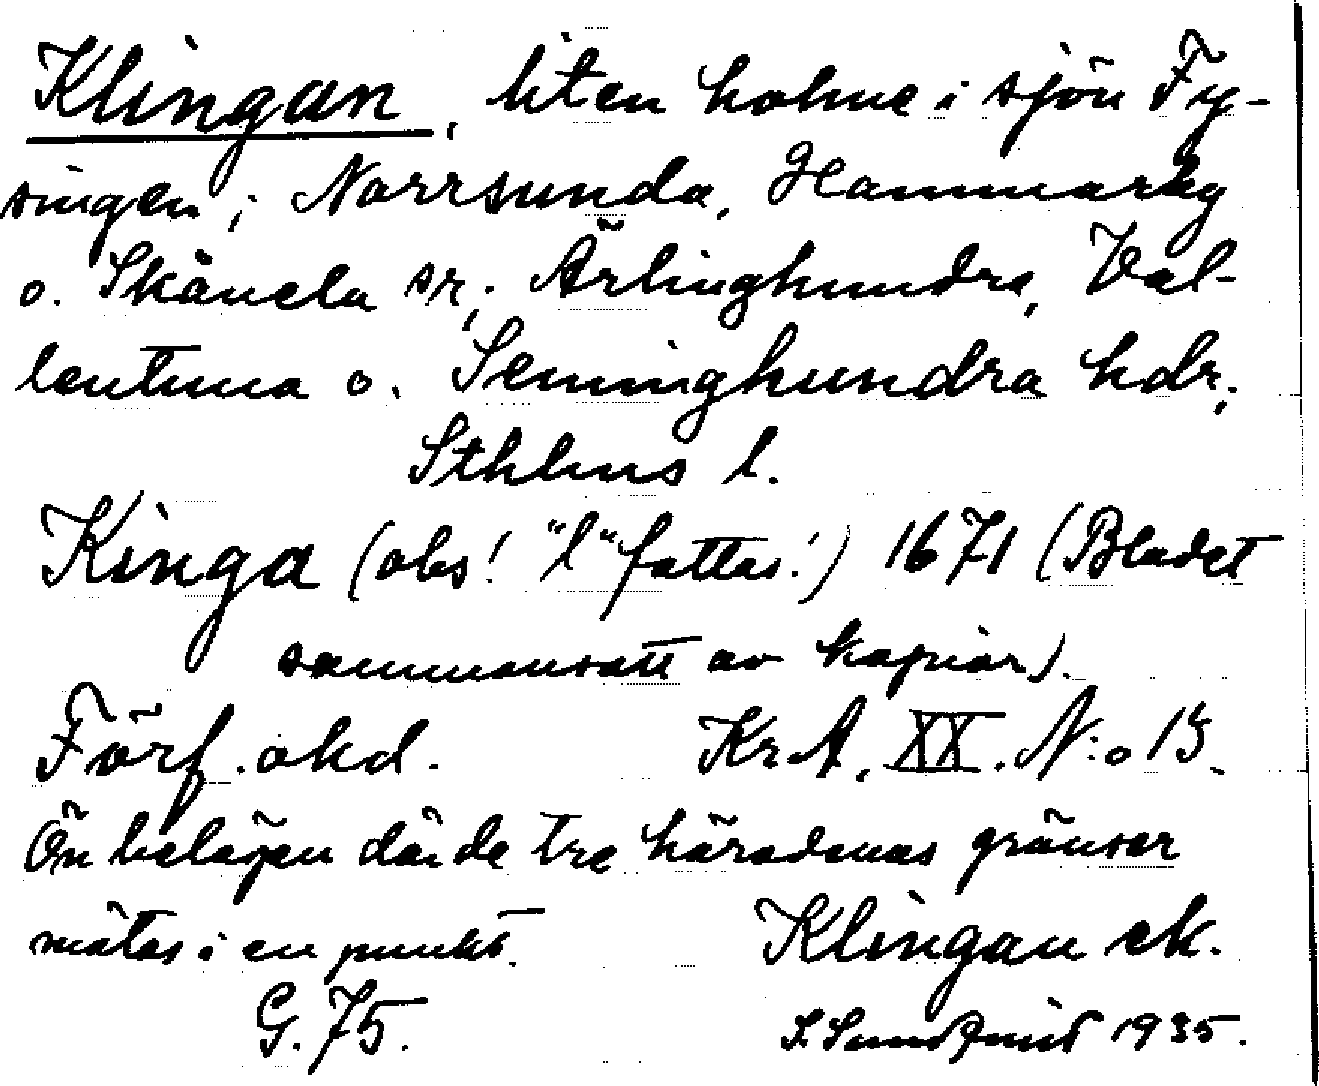 Klingan, liten holme i sjön Fy-
singen; Norrsunda, Hammarby
o. Skånela sr; Ärlinghundra, Val-
lentuna o. Seminghundra hdr;
Sthlms l.
Kinga (obs! "l" fattas!) 1671 (Bladet
sammansatt av kopior).
Förf. okd. Kr.A. XX. N:o 15.
Ön belägen där de tre häradenas gränser
mötas i en punkt. Klingan ek.
G. 75. S. Sundquist 1935.